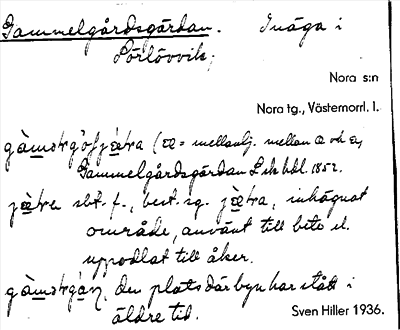 Gammelgårdsgärdan. Inäga i
Sörlövvik;
Nora s:n
Nora tg., Västernorrl. l.
(ææ = mellanlj. mellan a och e);
Gammelgårdsgärdan L sk hdl. 1852.
sbt. f., best. sg. inhägnat
område, använt till bete el.
uppodlat till åker.
den plats där byn har stått i
äldre tid.
Sven Hiller 1936.